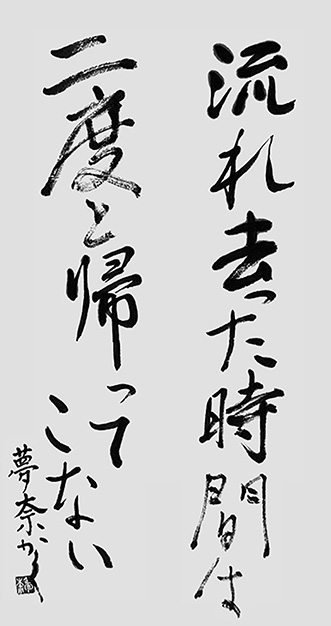 流れ去った時間は
二度と帰って
こない
夢奈かく